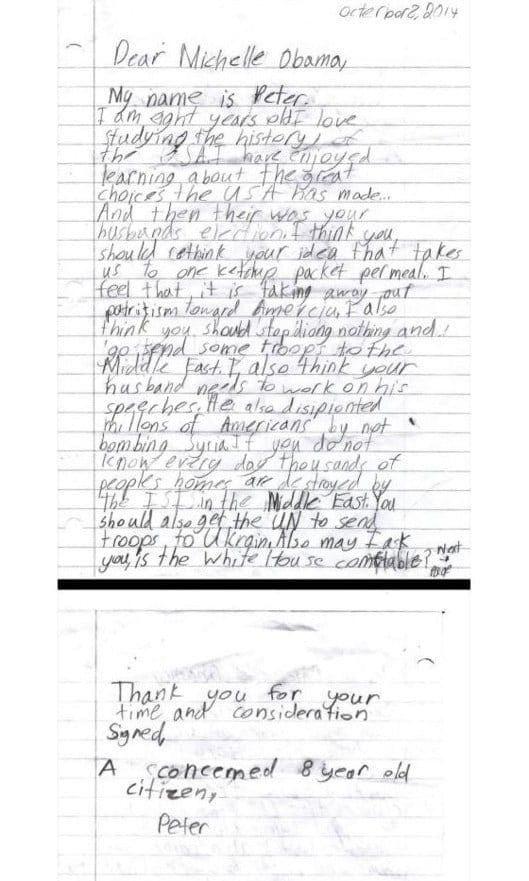 Octerbor 2, 2014
Dear Michelle Obama,
My name is Peter.
I am eght years old I love
studying the history of
the USA. I have enjoyed
learning about the great
choices the USA has made...
And then their was your
husbands election. I think you
should rethink your idea that takes
us to one ketchup packet per meal. I
feel that it is taking away our
patritism toward Amercia. I also
think you should stop diong nothing and
go send some troops to the
Middle East. I, also think your
husband needs to work on his
speeches. He also disipionted
millons of Americans by not
bombing Syria. If you do not
know every day thousands of
peoples homes are destroyed by
the ISI in the Middle East. You
should also get the UN to send
troops to Ukrain. Also may I ask
you, is the White House comftable? Next
Thank you for your
time and consideration
Signed,
A concerned 8 year old
citizen,
Peter